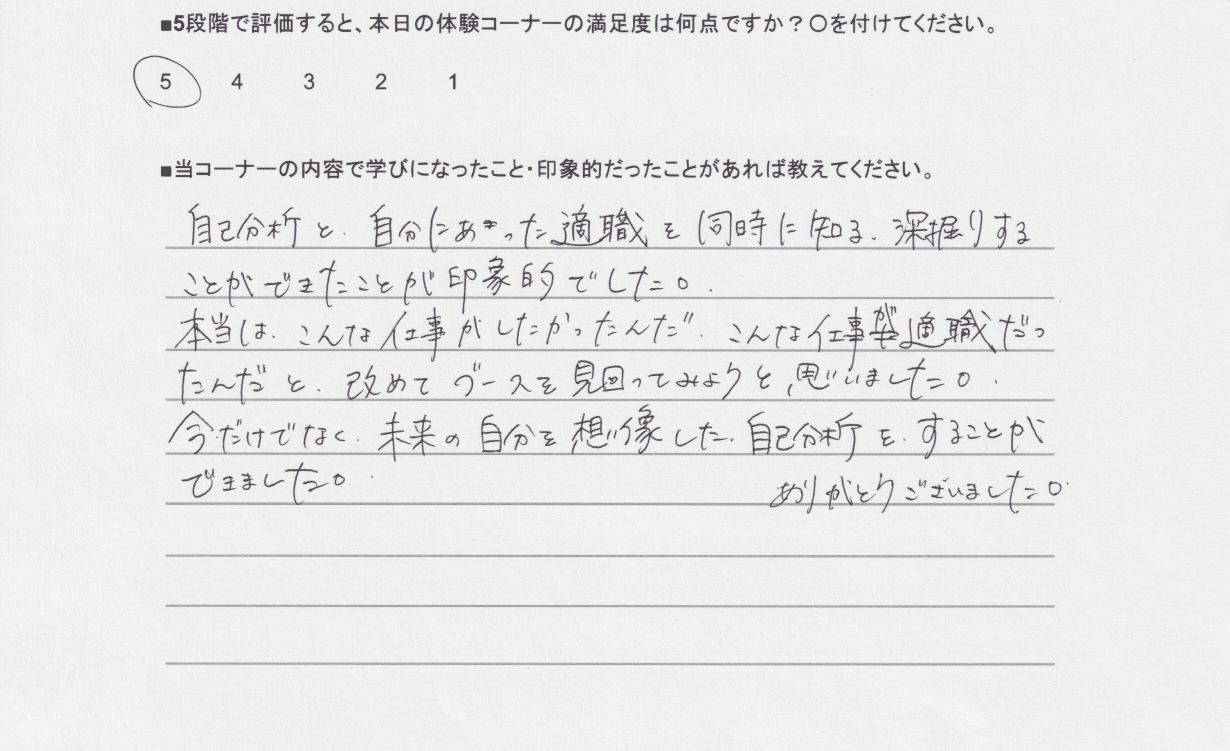 ■5段階で評価すると、本日の体験コーナーの満足度は何点ですか？〇を付けてください。
5 4 3 2 1
■当コーナーの内容で学びになったこと・印象的だったことがあれば教えてください。
自己分析と、自分にあった適職を同時に知る、深掘りする
ことができたことが印象的でした。
本当は、こんな仕事がしたかったんだ、こんな仕事が適職だっ
たんだと、改めてブースを見回ってみようと思いました。
今だけでなく、未来の自分を想像した、自己分析を、することが
できました。
ありがとうございました。